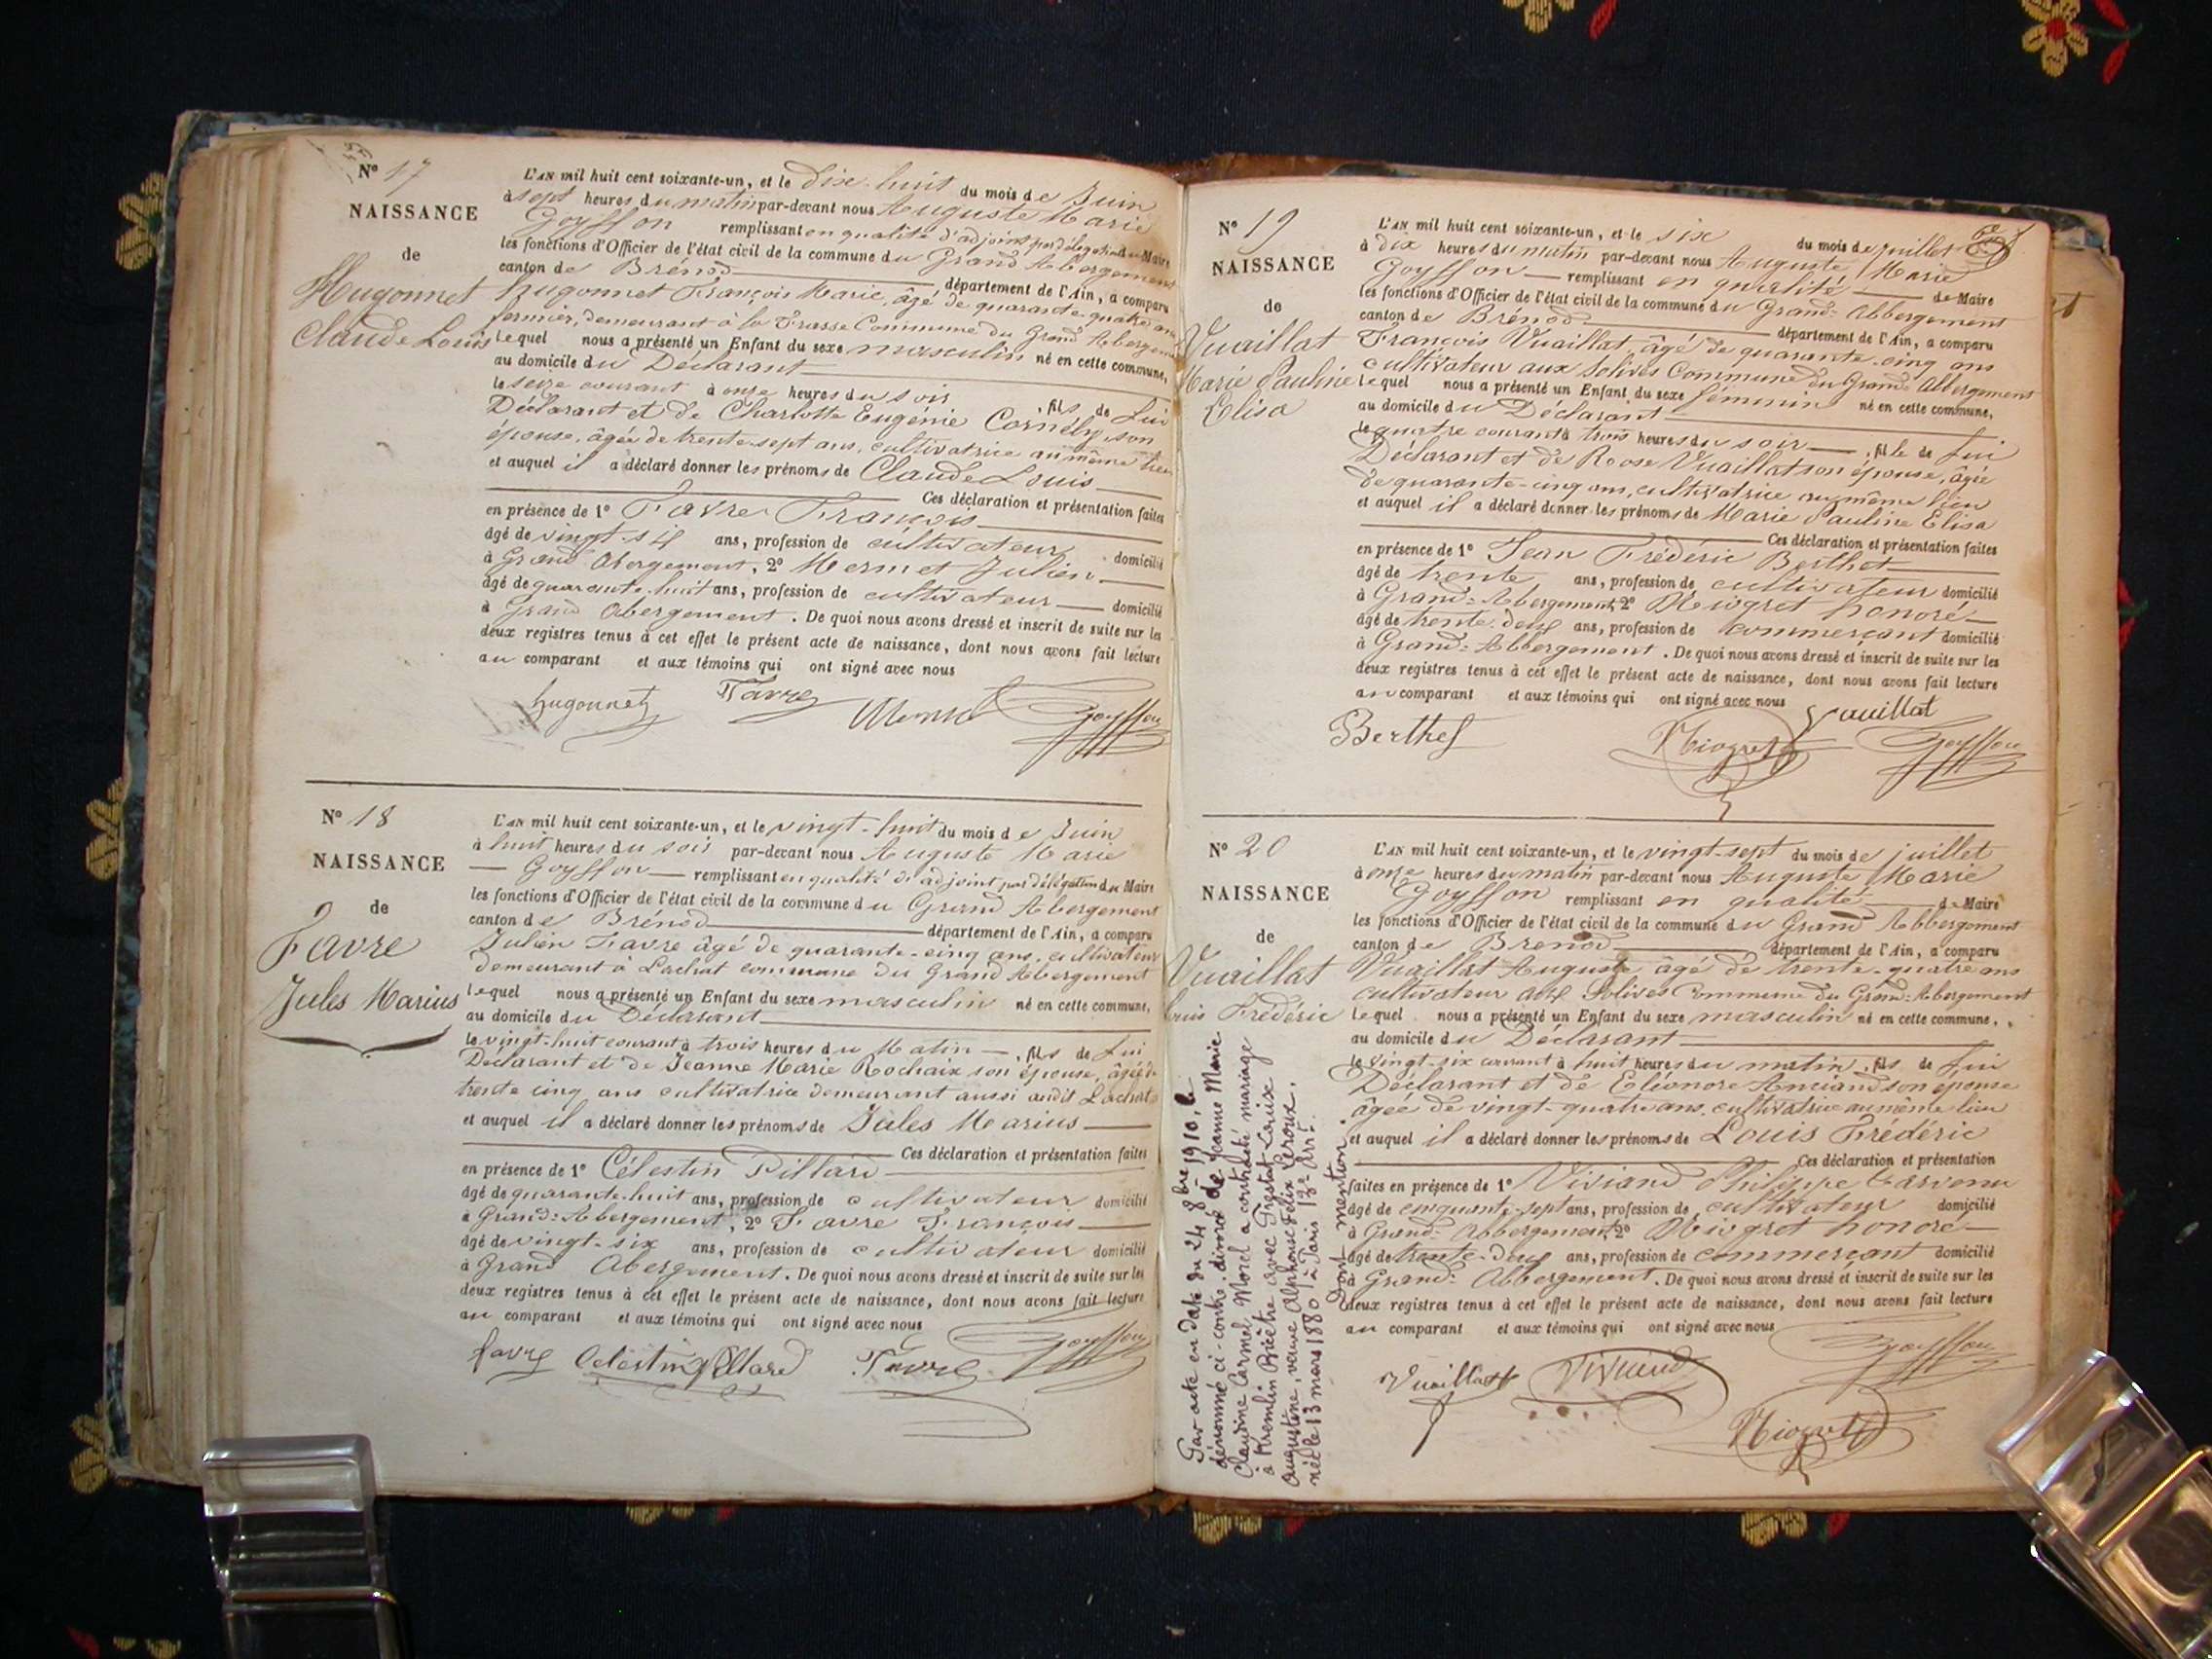 N° 17
NAISSANCE
de
Hugonnet
Claude Louis
L'AN mil huit cent soixante-un, et le dix-huit du mois de Juin
à sept heures du matin par-devant nous Auguste Marie
Goyffon remplissant en qualité d'adjoint par délégation du Maire
les fonctions d'Officier de l'état civil de la commune du Grand Abergement
canton de Brénod département de l'Ain, a comparu
hugonnet François Marie, âgé de quarante-quatre ans
fermier, demeurant à la Trasse Commune du Grand Abergement
lequel nous a présenté un Enfant du sexe masculin né en cette commune,
au domicile du Déclarant
le seize courant à onze heures du soir, fils de lui
Déclarant et de Charlotte Eugénie Cornély son
épouse, âgée de trente-sept ans, cultivatrice au même lieu
et auquel il a déclaré donner les prénoms de Claude Louis
Ces déclaration et présentation faites
en présence de 1° Favre François
âgé de vingt-six ans, profession de cultivateur domicilié
à Grand Abergement, 2° Mermet Julien
âgé de quarante-huit ans, profession de cultivateur domicilié
à Grand Abergement. De quoi nous avons dressé et inscrit de suite sur les
deux registres tenus à cet effet le présent acte de naissance, dont nous avons fait lecture
au comparant et aux témoins qui ont signé avec nous
hugonnet Favre Mermet Goyffon
N° 18
NAISSANCE
de
Favre
Jules Marius
L'AN mil huit cent soixante-un, et le vingt-huit du mois de Juin
à huit heures du soir par-devant nous Auguste Marie
Goyffon remplissant en qualité d'adjoint par délégation du Maire
les fonctions d'Officier de l'état civil de la commune du Grand Abergement
canton de Brénod département de l'Ain, a comparu
Julien Favre âgé de quarante-cinq ans, cultivateur
demeurant à Lachat commune du Grand Abergement
lequel nous a présenté un Enfant du sexe masculin né en cette commune,
au domicile du Déclarant
le vingt-huit courant à trois heures du Matin, fils de lui
Déclarant et de Jeanne Marie Rochaix son épouse, âgée de
trente cinq ans cultivatrice demeurant aussi audit Lachat
et auquel il a déclaré donner les prénoms de Jules Marius
Ces déclaration et présentation faites
en présence de 1° Célestin Pillard
âgé de quarante-huit ans, profession de cultivateur domicilié
à Grand-Abergement, 2° Favre François
âgé de vingt-six ans, profession de cultivateur domicilié
à Grand Abergement. De quoi nous avons dressé et inscrit de suite sur les
deux registres tenus à cet effet le présent acte de naissance, dont nous avons fait lecture
au comparant et aux témoins qui ont signé avec nous
favre Celestin Pillard Favre Goyffon
N° 19
NAISSANCE
de
Vuaillat
Marie Pauline
Elisa
L'AN mil huit cent soixante-un, et le six du mois de Juillet
à dix heures du matin par-devant nous Auguste Marie
Goyffon remplissant en qualité de Maire
les fonctions d'Officier de l'état civil de la commune du Grand-Abbergement
canton de Brénod département de l'Ain, a comparu
François Vuaillat âgé de quarante-cinq ans
cultivateur aux Solives Commune du Grand Abbergement
lequel nous a présenté un Enfant du sexe féminin né en cette commune,
au domicile du Déclarant
le quatre courant à trois heures du soir, fille de lui
Déclarant et de Roose Vuaillat son épouse, âgée
de quarante-cinq ans, cultivatrice au même lieu
et auquel il a déclaré donner les prénoms de Marie Pauline Elisa
Ces déclaration et présentation faites
en présence de 1° Jean Frédéric Berthet
âgé de trente ans, profession de cultivateur domicilié
à Grand-Abergement, 2° Miogret honoré
âgé de trente-deux ans, profession de commerçant domicilié
à Grand-Abbergement. De quoi nous avons dressé et inscrit de suite sur les
deux registres tenus à cet effet le présent acte de naissance, dont nous avons fait lecture
au comparant et aux témoins qui ont signé avec nous Vauillat
Berthet Miogret Goyffon
N° 20
NAISSANCE
de
Vuaillat
Louis Frédéric
L'AN mil huit cent soixante-un, et le vingt-sept du mois de juillet
à onze heures du matin par-devant nous Auguste Marie
Goyffon remplissant en qualité de Maire
les fonctions d'Officier de l'état civil de la commune du Grand Abbergement
canton de Brénod département de l'Ain, a comparu
Vuaillat Auguste âgé de trente-quatre ans
cultivateur aux Solives Commune du Grand-Abergement
lequel nous a présenté un Enfant du sexe masculin né en cette commune,
au domicile du Déclarant
le vingt-six courant à huit heures du matin, fils de lui
Déclarant et de Eléonore Anciand son épouse
âgée de vingt-quatre ans, cultivatrice au même lieu
et auquel il a déclaré donner les prénoms de Louis Frédéric
Ces déclaration et présentation
faites en présence de 1° Viviand Philippe
âgé de cinquante-sept ans, profession de cultivateur domicilié
à Grand-Abbergement, 2° Miogret honoré
âgé de trente-deux ans, profession de commerçant domicilié
à Grand-Abbergement. De quoi nous avons dressé et inscrit de suite sur les
deux registres tenus à cet effet le présent acte de naissance, dont nous avons fait lecture
au comparant et aux témoins qui ont signé avec nous
Vuaillat Viviand Goyffon
Miogret
Par acte en date du 24 8bre 1910, le
dénommé ci-contre, divorcé de Jeanne Marie
Claudine Carmel Morel a contracté mariage
à Kremlin Bicêtre avec Trestat Louise
Augustine, veuve Alphonse Félix Leroux,
née le 13 mars 1880 à Paris 13e Arrt
Dont mention.